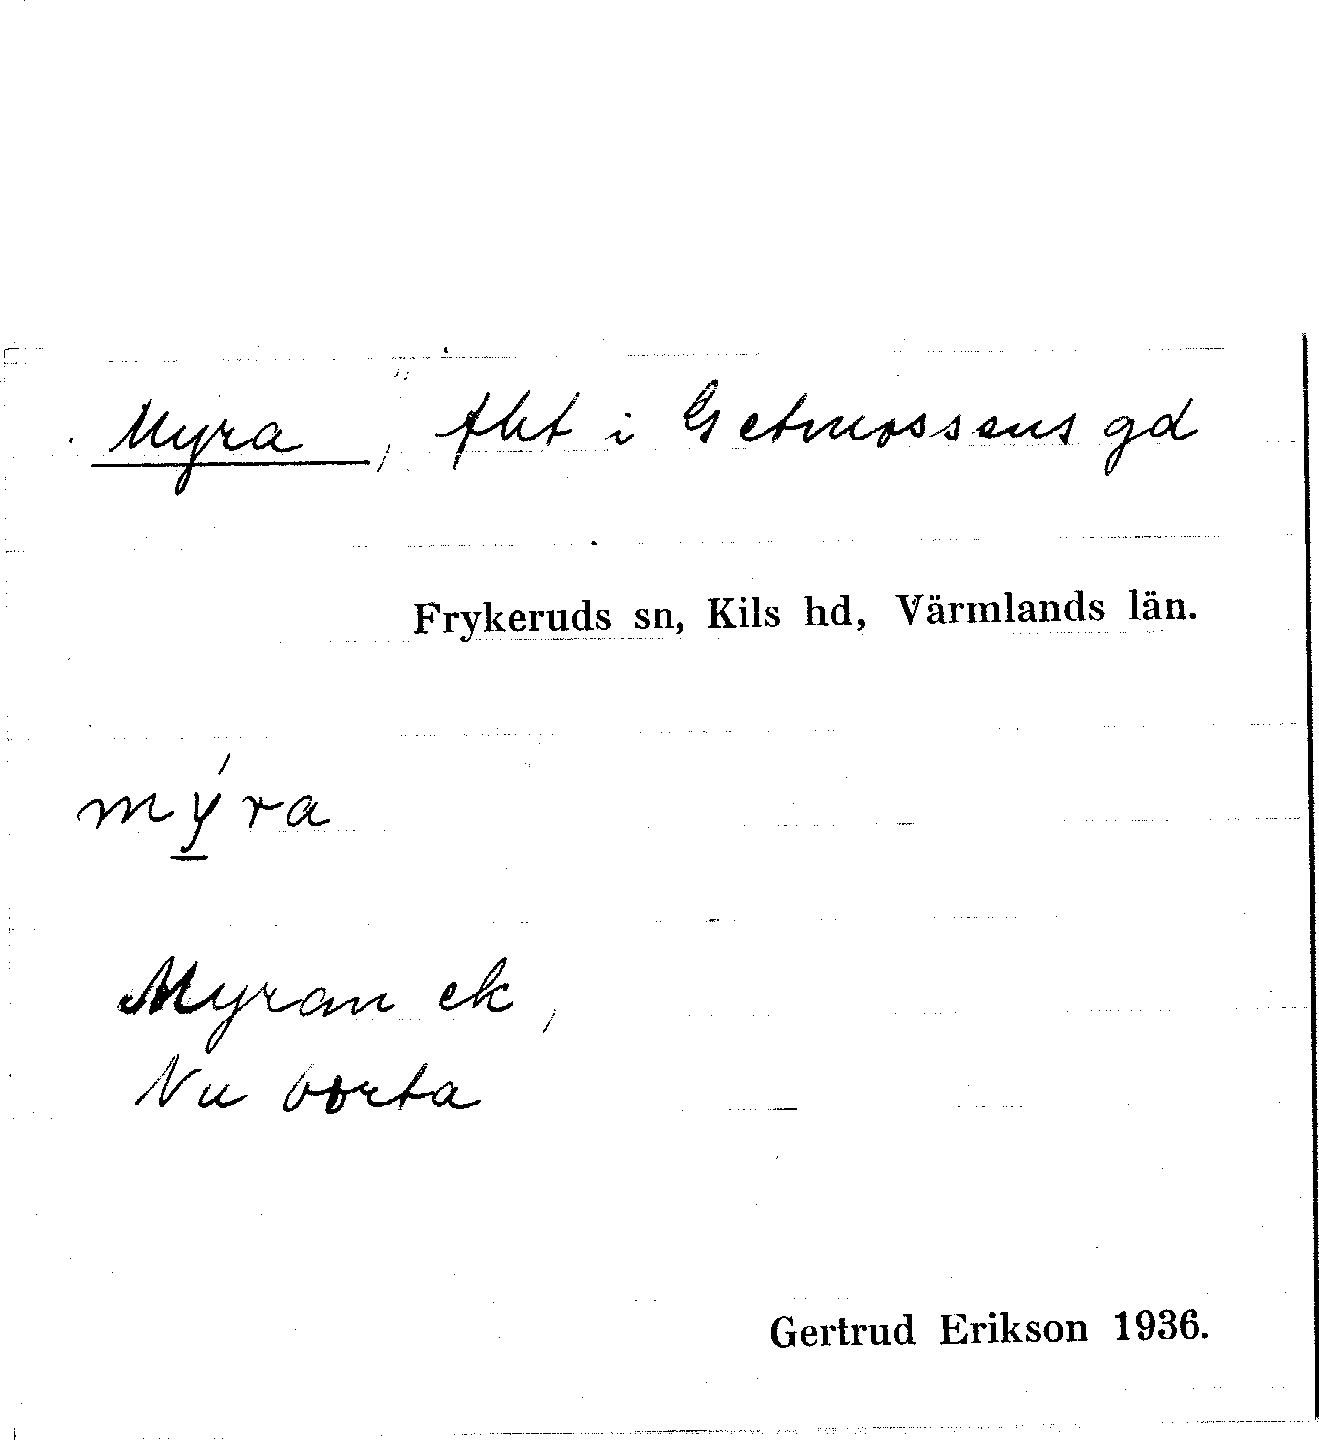 Myra, fht i Getmossens gd
Frykeruds sn, Kils hd, Värmlands län.
mýra
Myran ek,
Nu borta
Gertrud Erikson 1936.